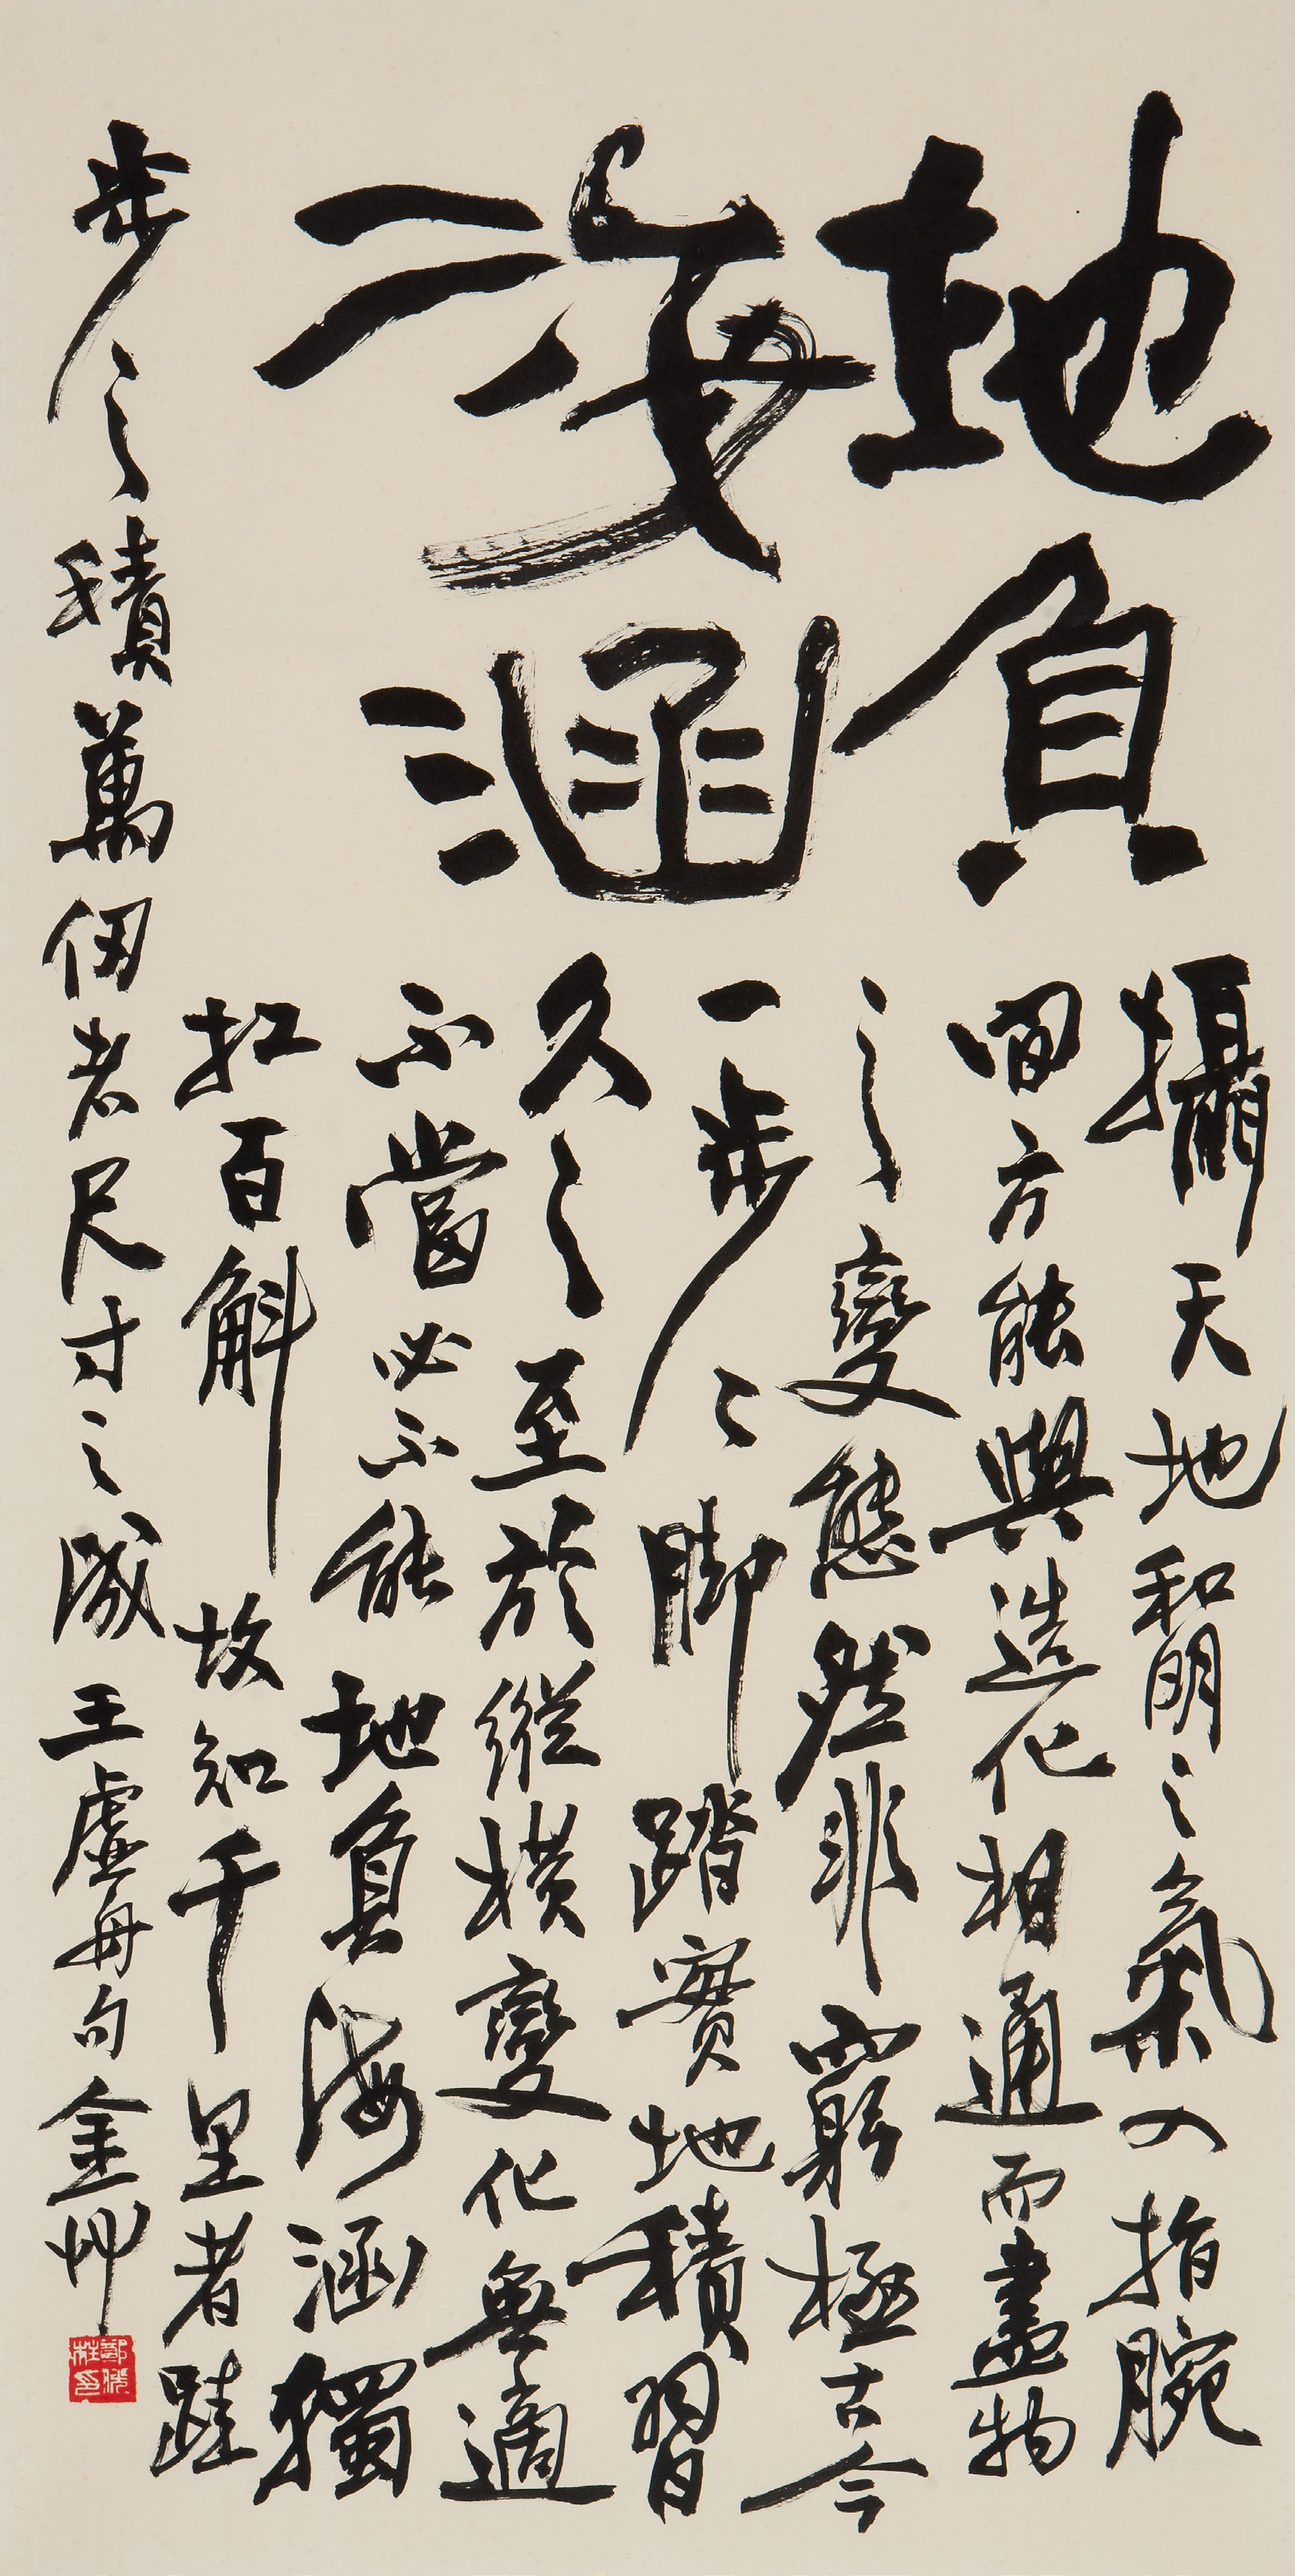 地負
海涵
攝天地和明之氣入指腕
間方能與造化相通而盡物
之變態然非窮極古今
一步々腳踏實地積習
久之至於縱橫變化無適
不當必不能地負海涵獨
扛百斛故知千里者跬
步之積萬仞者尺寸之成王虛舟句金